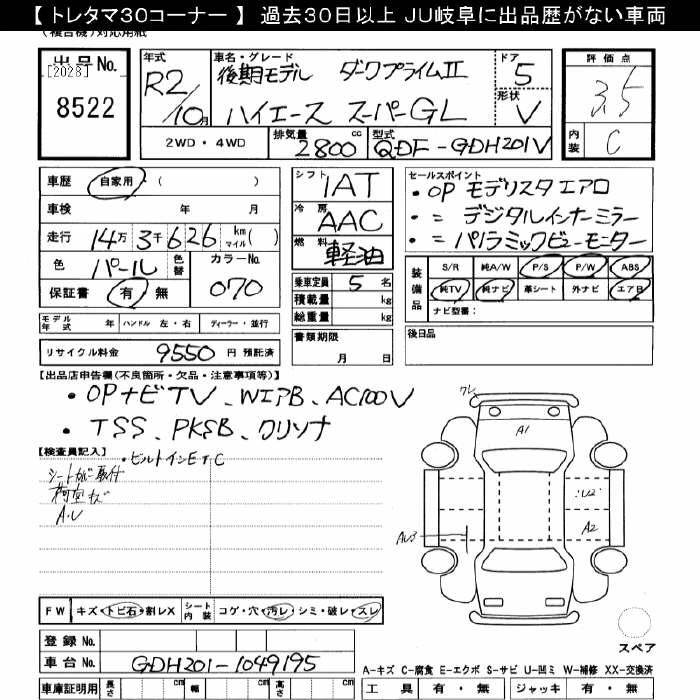 【 トレタマ30コーナー 】 過去30日以上 JU岐阜に出品歴がない車両
出品No.
[2028]
8522
年式
R2/10月
車名・グレード
後期モデル ダークプライムII
ハイエース スーパーGL
ドア
5
形状
V
評価点
3.5
内装
C
2WD・4WD
排気量
2800cc
型式
QDF-GDH201V
車歴 自家用・( )
車検 年 月
走行 14万3千626 km マイル( )
色 パール 色替
カラーNo.
070
保証書 有・無
シフト
1AT
冷房
AAC
燃料
軽油
乗車定員 5 名
積載量 kg
総重量 kg
書類期限
月 日
セールスポイント
・OP モデリスタエアロ
・= デジタルインナーミラー
・= パノラミックビューモーター
装備品
S/R 純A/W P/S P/W ABS
純TV 純ナビ 革シート 外ナビ エアB
ナビ型番:
後日品
モデル年式 年 ハンドル 左・右 ディーラー・並行
リサイクル料金 9550 円 預託済
【出品店申告欄(不良箇所・欠品・注意事項等)】
・OPナビTV、WエアB、AC100V
・TSS、PKSB、クリソナ
【検査員記入】
・ビルトインETC
A・U
ワレ
A1
U2
A2
AU3
FW キズ・トビ石・割レX シート内装 コゲ・穴・汚レ・シミ・破レ・スレ
スペア
登録No.
車台No. GDH201-1049195
A-キズ C-腐食 E-エクボ S-サビ U-凹ミ W-補修 XX-交換済
車庫証明用 長さ cm 幅 cm 高さ cm
工具 有・無 ジャッキ 有・無